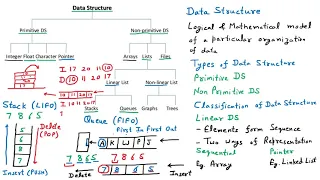 Data Structure
Primitive DS
Non-primitive DS
Integer Float Character Pointer
Arrays Lists Files
I 17 20 11 10
D 10 11 20 17
Linear List
Non-linear List
10 11 20 17
Stacks
Queues
Graphs
Trees
Stack (LIFO)
7 8 6 5
Delete
(Pop)
5
6
8
7
Insert (Push)
Queue (FIFO)
First In First Out
A K W P J
7 8 6 5
7 8 6 5
Delete
Insert
Data Structure
Logical & Mathematical model
of a particular organization
of data
Types of Data Structure
Primitive DS
Non Primitive DS
Classification of Data Structure
Linear DS
- Elements form Sequence
- Two ways of Representation
Sequential Pointer
Eg. Array Eg. Linked List